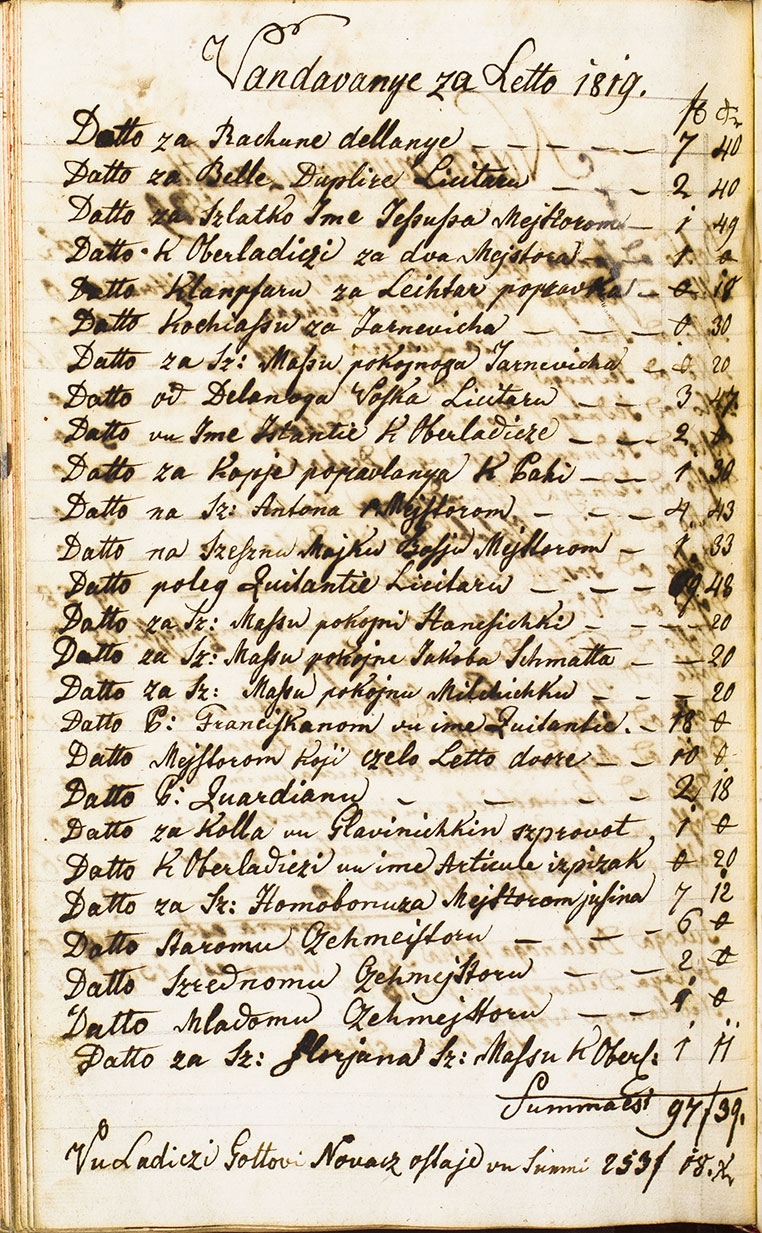 Vandavanye za Letto 1819.
f xr
Datto za Rachune dellanye — — — — — 7 40
Datto za Belle Duplire Licitaru — — — 2 40
Datto za Szlatko Ime Jessussa Mejstorom — 1 49
Datto K Oberladiczi za dva Mejstora — 1. 0
Datto Klanpfaru za Leihtar popravka — 0 18
Datto Kochiassu za Jarnevicha — — — 0. 30.
Datto za Sz: Massu pokojnoga Jarnevicha 0. 20
Datto od Delanoga Voska Licitaru — — 3 47.
Datto vu Ime Istantie K Oberladicze — — 2.
Datto za Kopje popravlanya K — — 1. 30
Datto na Sz: Antona Mejstorom — — — 4. 43
Datto na Szesznu Majku Mejstorom — 1. 33
Datto poleg Quitantie Licitaru — — — 9. 48
Datto za Sz: Massu pokojni — — — 20
Datto za Sz: Massu pokojne Jakoba Schmatta — — 20
Datto za Sz: Massu pokojnu — — — 20
Datto P: Franciskanom vu ime Quitantie. — 18 0
Datto Mejstorom koji czelo Letto dvore — — 10 0
Datto P: Quardianu — — — — 2. 18
Datto za Kolla vu Glavinichkin szprovot 1. 0
Datto K Oberladiczi vu ime Articule izpizak 0 20
Datto za Sz: Homobonusa Mejstorom jusina 7 12
Datto Staromu Czehmejstoru — — — 6 0
Datto Szrednomu Czehmejstoru — — — 2 0
Datto Mladomu Czehmejstoru — — 1 0
Datto za Sz: Florjana Sz: Massu K Oberl: 1 11
Summa Est 97f 39.
Vu Ladiczi Gottovi Novacz ostaje vu Summi 253f 18. xr